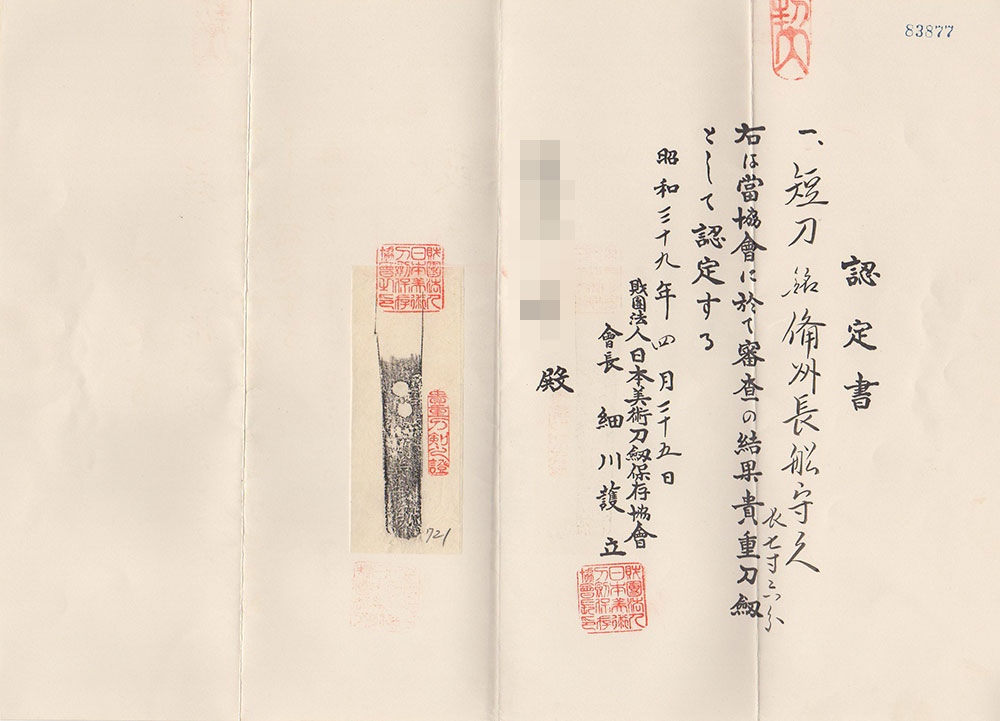 83877
認定書
一、短刀 銘 備州長船守久
長七寸六分
右は當協會に於て審査の結果貴重刀劔
として認定する
昭和三十九年四月二十五日
財團法人日本美術刀劔保存協會
會長 細川護立
殿
財團法人
日本美術
刀劔保存
協會長印
貴重刀剣之證
財團法人
日本美術
刀劔保存
協會之印
721